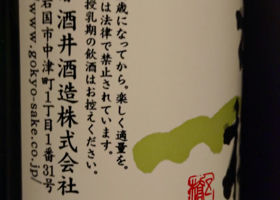 歳になってから。楽しく適量を。
は法律で禁止されています。
授乳期の飲酒はお控えください。
酒井酒造株式会社
岩国市中津町1丁目1番31号
www.gokyo-sake.co.jp/